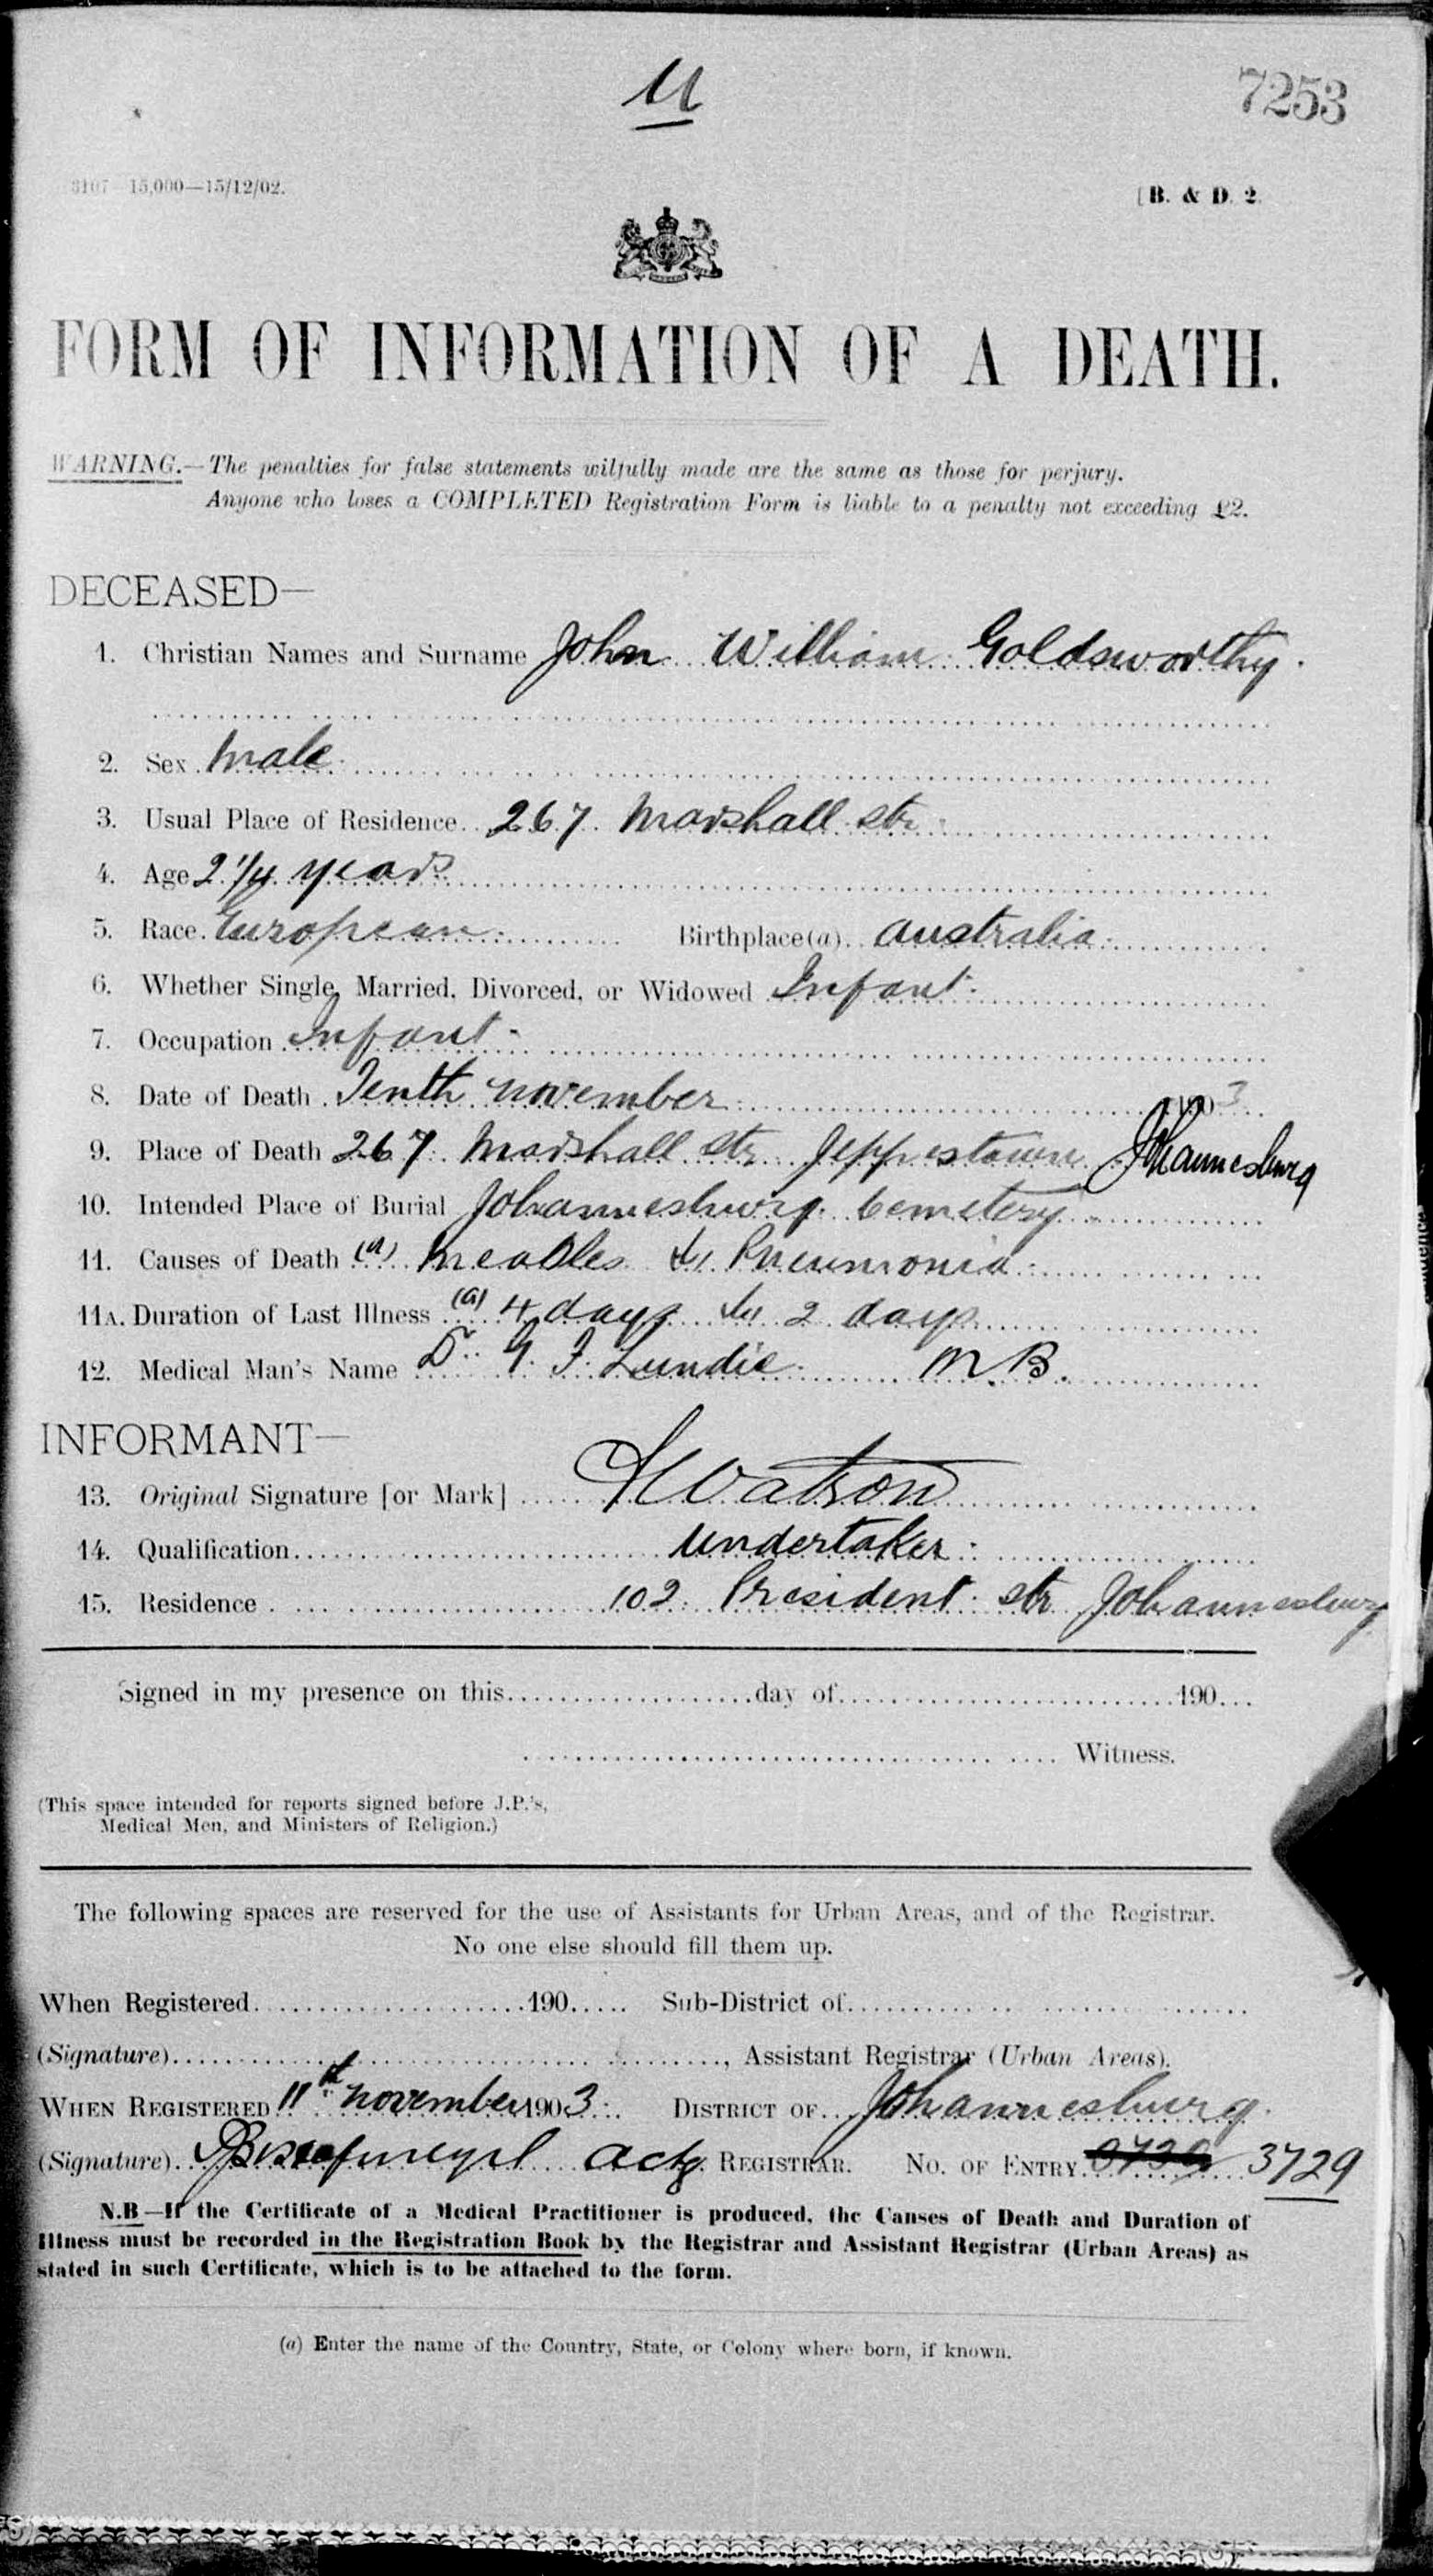 U
7253
3107 15,000—15/12/02.
[B. & D. 2.
FORM OF INFORMATION OF A DEATH.
WARNING.—The penalties for false statements wilfully made are the same as those for perjury.
Anyone who loses a COMPLETED Registration Form is liable to a penalty not exceeding £2.
DECEASED—
1. Christian Names and Surname John William Goldsworthy.
2. Sex Male
3. Usual Place of Residence 267 Marshall str
4. Age 2 1/4 years
5. Race European Birthplace(a) Australia
6. Whether Single, Married, Divorced, or Widowed Infant
7. Occupation Infant
8. Date of Death Tenth November 1903
9. Place of Death 267 Marshall str Jeppestown Johannesburg
10. Intended Place of Burial Johannesburg Cemetery
11. Causes of Death (a) Measles (b) Pneumonia
11A. Duration of Last Illness (a) 4 days (b) 2 days
12. Medical Man's Name Dr. G. F. Lundie M.B.
INFORMANT—
13. Original Signature [or Mark] Watson
14. Qualification Undertaker
15. Residence 102 President str Johannesburg
Signed in my presence on this day of 190
Witness.
(This space intended for reports signed before J.P.'s,
Medical Men, and Ministers of Religion.)
The following spaces are reserved for the use of Assistants for Urban Areas, and of the Registrar.
No one else should fill them up.
When Registered 190 Sub-District of
(Signature) , Assistant Registrar (Urban Areas).
WHEN REGISTERED 11th November 1903 DISTRICT OF Johannesburg
(Signature) Actg. REGISTRAR. No. OF ENTRY 3729
N.B—If the Certificate of a Medical Practitioner is produced, the Causes of Death and Duration of
Illness must be recorded in the Registration Book by the Registrar and Assistant Registrar (Urban Areas) as
stated in such Certificate, which is to be attached to the form.
(a) Enter the name of the Country, State, or Colony where born, if known.